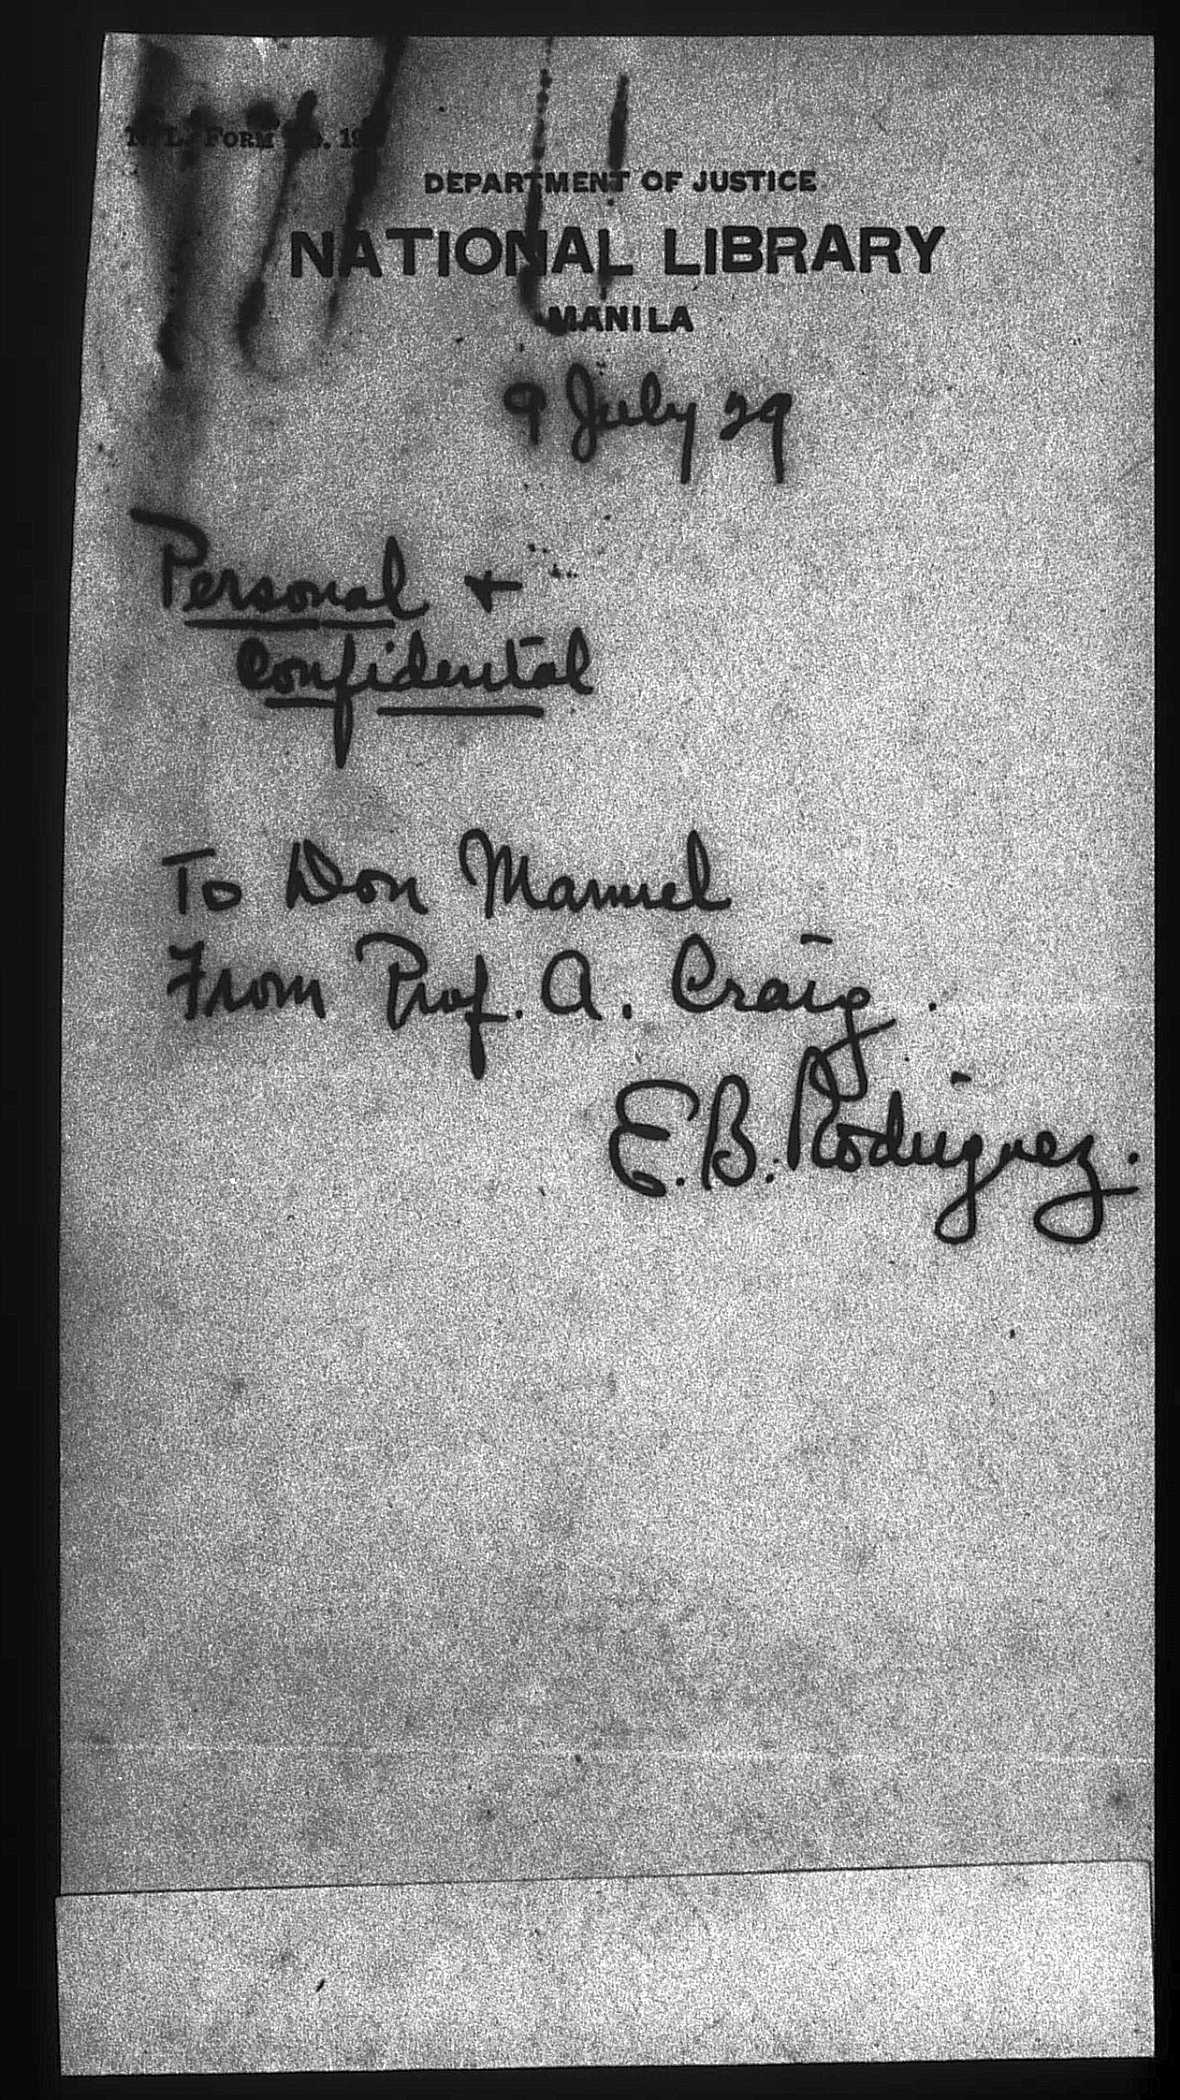 N. L. FORM No. 19
DEPARTMENT OF JUSTICE
NATIONAL LIBRARY
MANILA
9 July 29
Personal +
Confidental
To Don Manuel
From Prof. A. Craig.
E.B. Rodriguez.